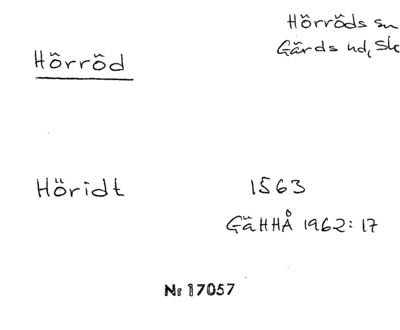 Hörröds sn
Gärds hd, Sk
Hörröd
Höridt 1563
GäHHÅ 1962:17
Nr 17057